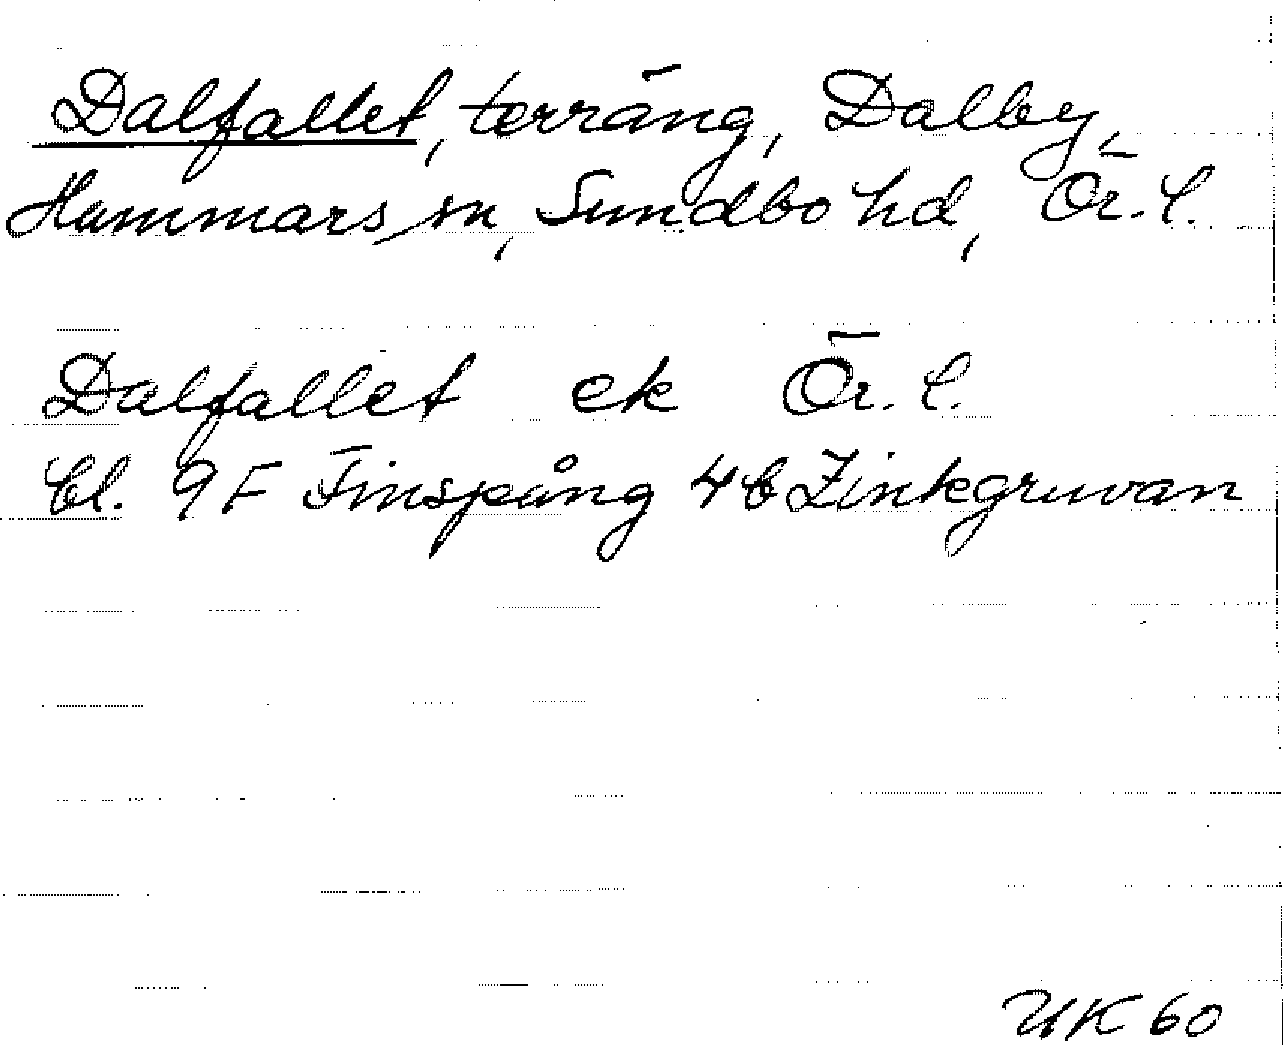 Dalfallet, terräng, Dalby,
Hammars sn, Sundbo hd, Ör. l.
Dalfallet ek Ör. l.
Bl. 9F Finspång 4b Zinkgruvan
UK 60